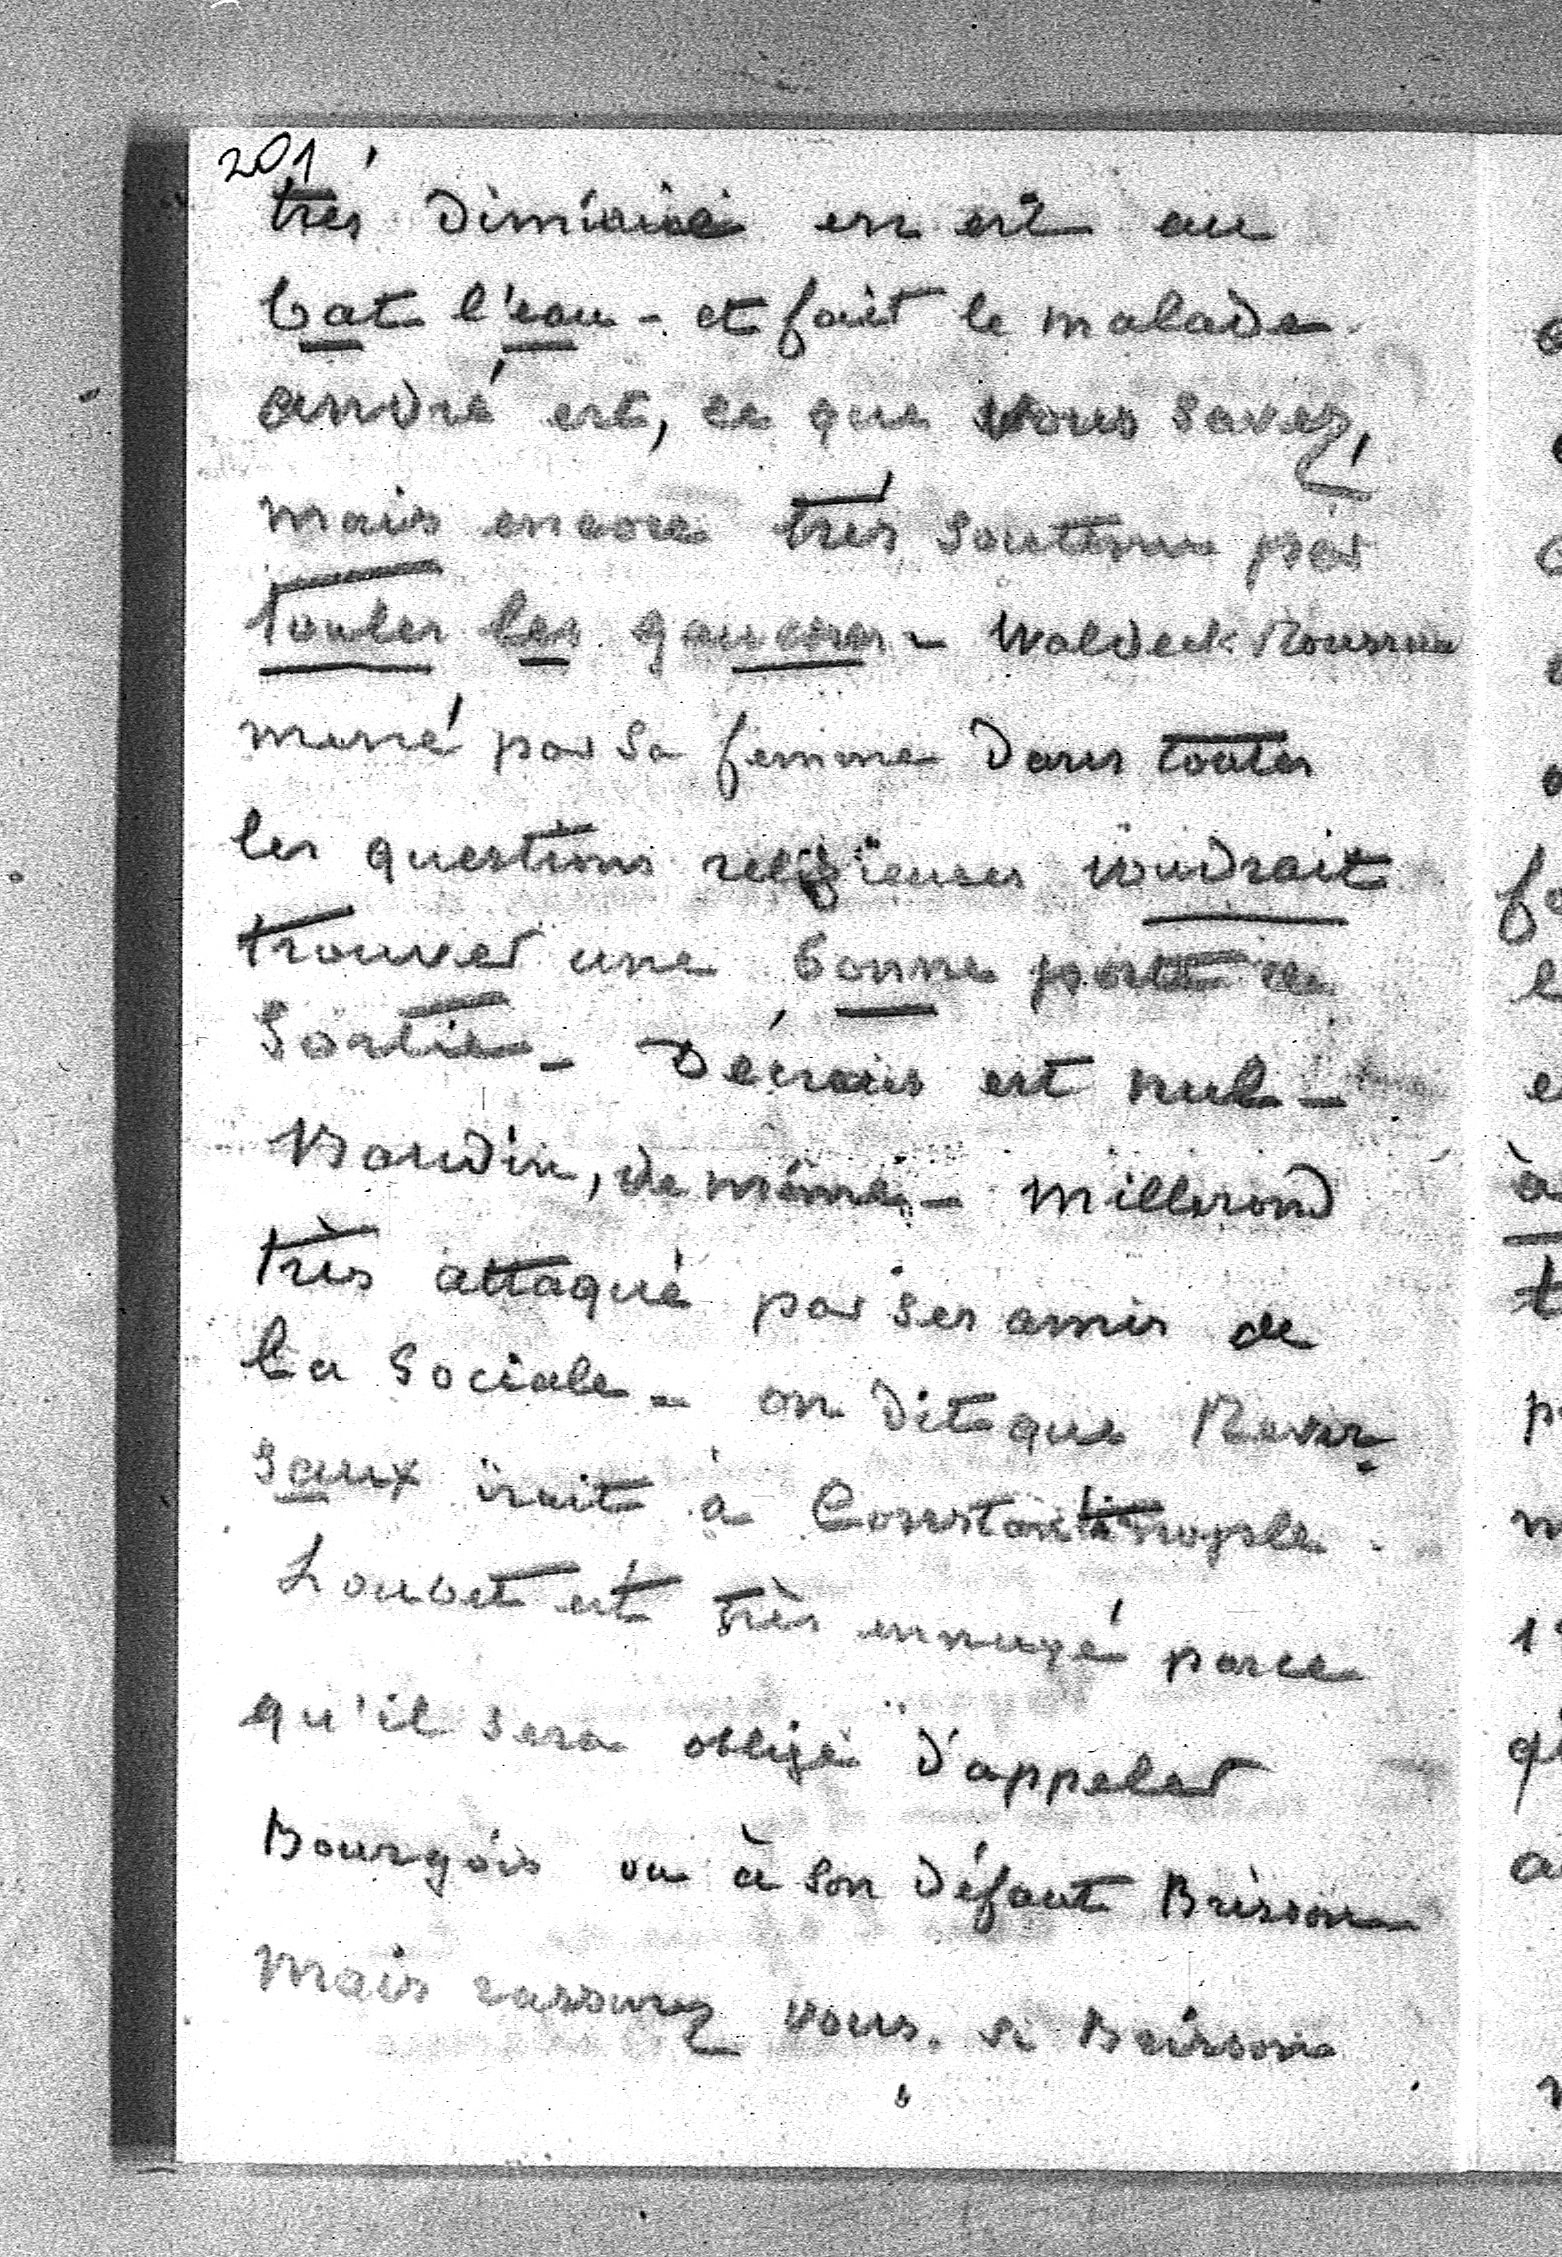 201
très diminué en est au
bat l'eau - et fait le malade.
andré est, ce que vous savez,
mais encore très soutenu par
toutes les gauches - Waldeck Rousseau
mené par sa femme dans toutes
les questions religieuses voudrait
trouver une bonne porte de
sortie - Décrais est nul -
Baudin, de même - Millerand
très attaqué par ses amis de
la sociale - on dit que Rever-
seaux irait à Constantinople.
Loubet est très ennuyé parce
qu'il sera obligé d'appeler
Bourgois ou à son défaut Brisson
mais rassurez vous. si Brisson